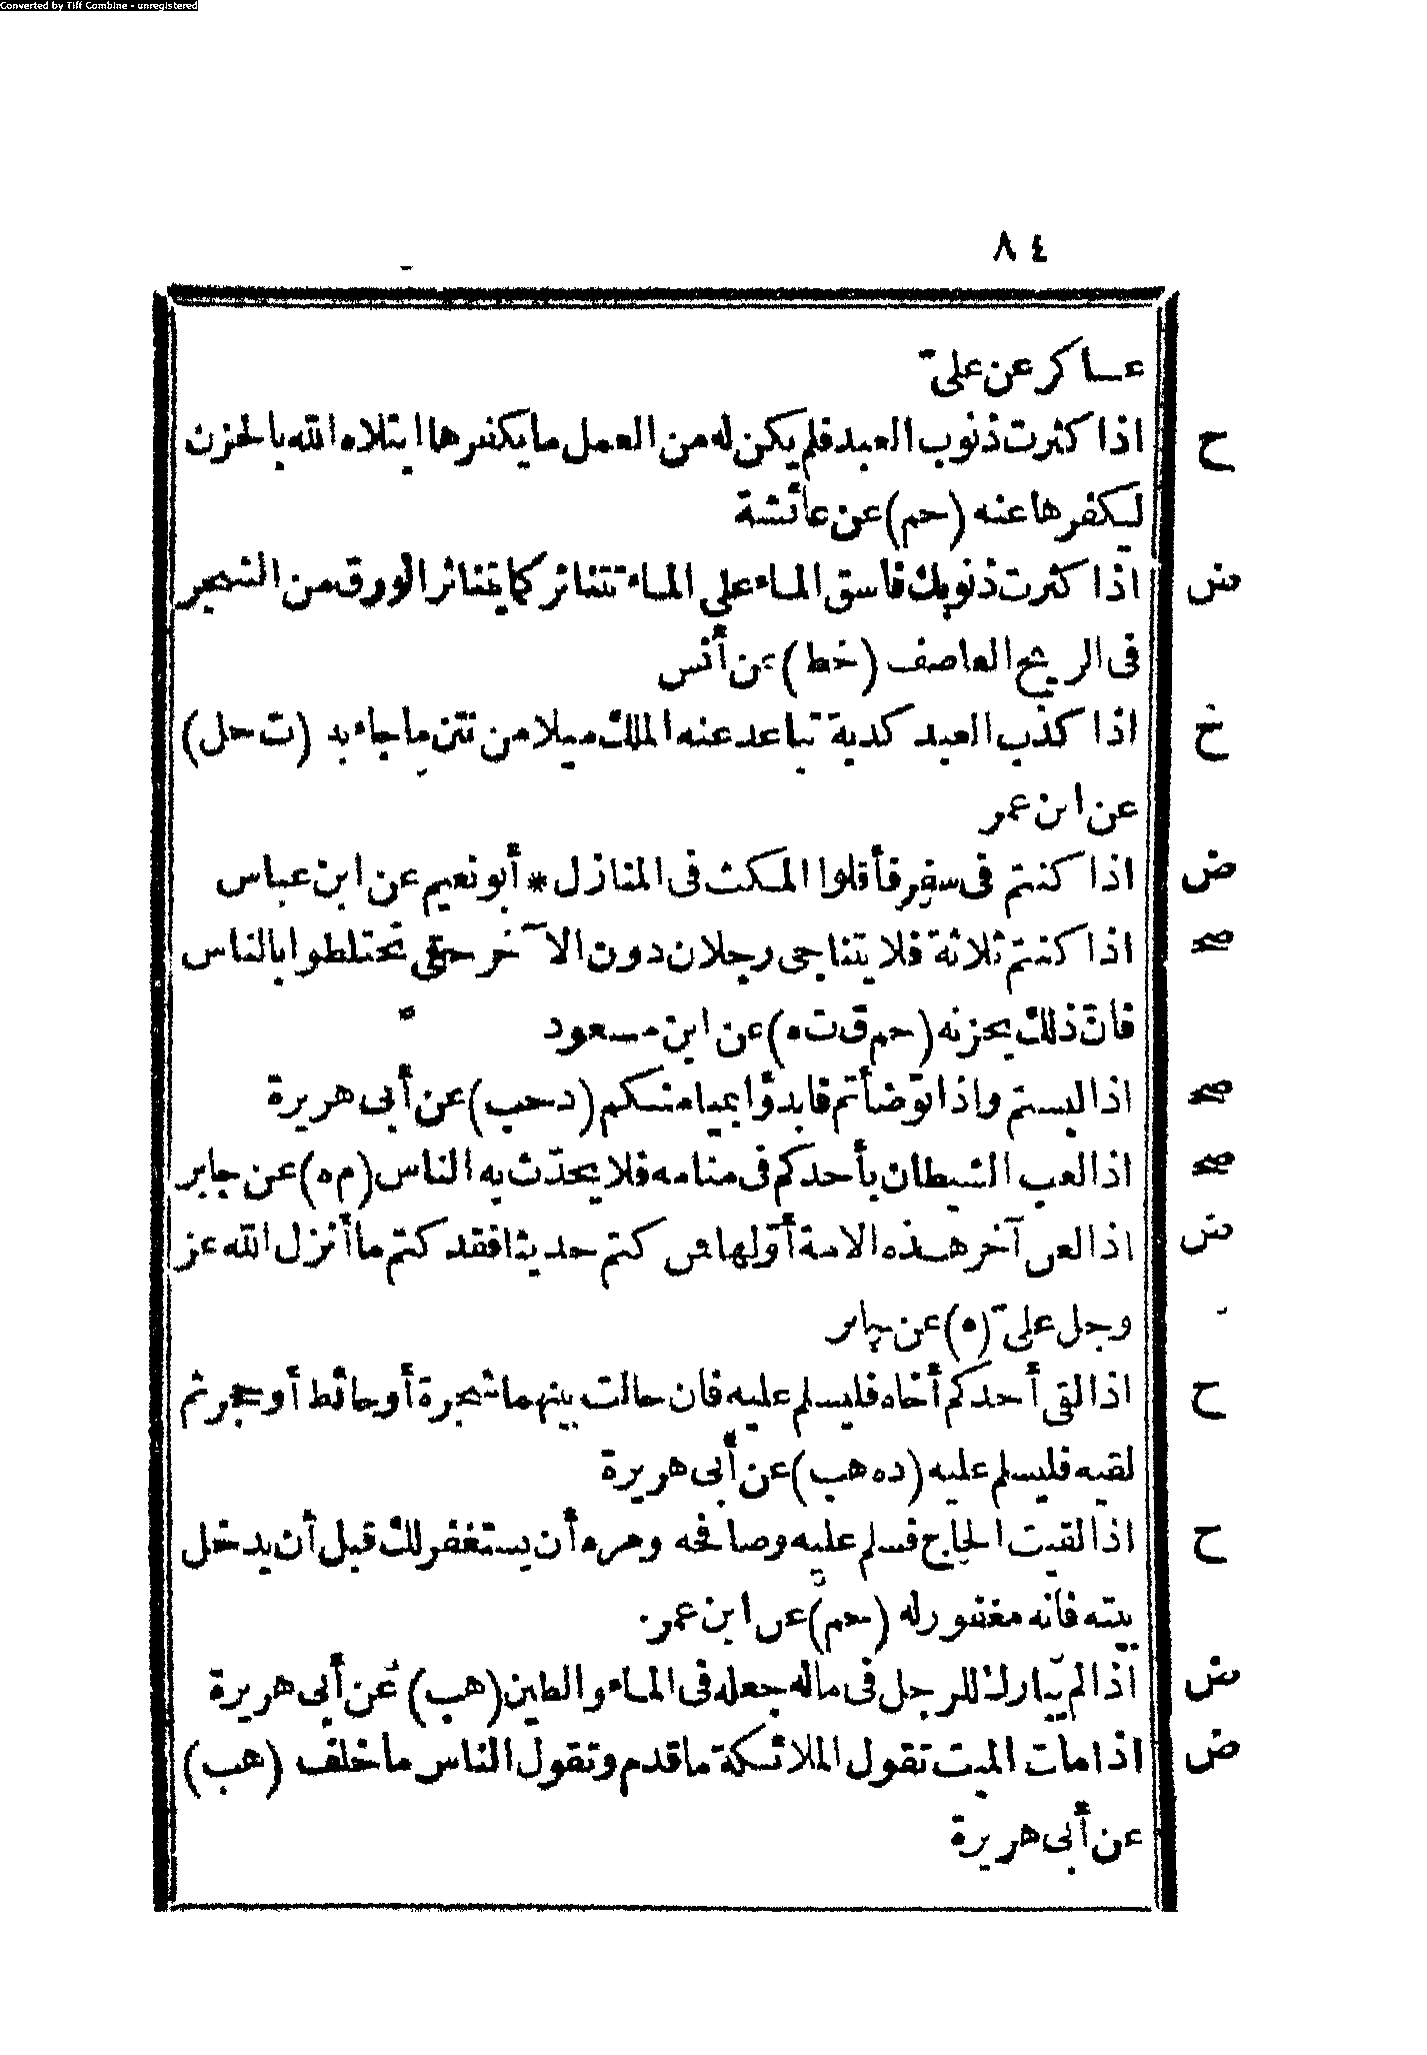 Converted by Tiff Combine - unregistered
٨٤
عساكر عن علىّ
ح اذا كثرت ذنوب العبد فلم يكن له من العمل ما يكفرها ابتلاه الله بالحزن
ليكفرها عنه (حم) عن عائشة
ض اذا كثرت ذنوبك فاسق الماء على الماء تتناثر كما يتناثر الورق من الشجر
فى الريح العاصف (خط) عن أنس
ح اذا كذب العبد كذبة تباعد عنه الملك ميلا من نتن ما جاء به (ت حل)
عن ابن عمر
ض اذا كنتم فى سفر فأقلوا المكث فى المنازل * أبو نعيم عن ابن عباس
صح اذا كنتم ثلاثة فلا يتناجى رجلان دون الآخر حتى تختلطوا بالناس
فانّ ذلك يحزنه (حم ق ت ه) عن ابن مسعود
صح اذا لبستم واذا توضأتم فابدؤا بميامنكم (د حب) عن أبى هريرة
صح اذا لعب الشيطان بأحدكم فى منامه فلا يحدّث به الناس (م ه) عن جابر
ض اذا لعن آخر هذه الامة أوّلها فمن كتم حديثا فقد كتم ما أنزل الله عز
وجل علىّ (ه) عن جابر
ح اذا لقى أحدكم أخاه فليسلم عليه فان حالت بينهما شجرة أو حائط أو حجر ثم
لقيه فليسلم عليه (د ه هب) عن أبى هريرة
ح اذا لقيت الحاج فسلم عليه وصافحه ومره أن يستغفر لك قبل أن يدخل
بيته فانه مغفور له (حم) عن ابن عمر
ض اذا لم يبارك للرجل فى ماله جعله فى الماء والطين (هب) عن أبى هريرة
ض اذا مات الميت تقول الملائكة ما قدم وتقول الناس ما خلف (هب)
عن أبى هريرة